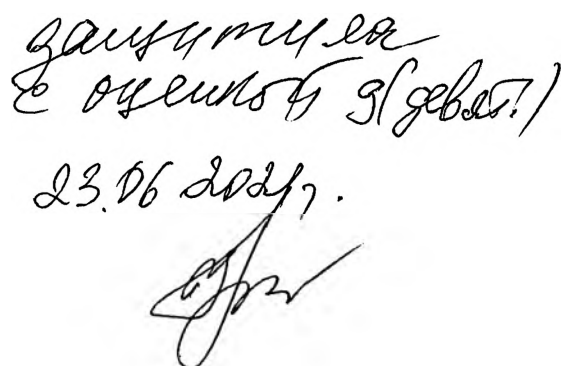 защитила
с оценкой 9 (девят.)
23.06 2021г.